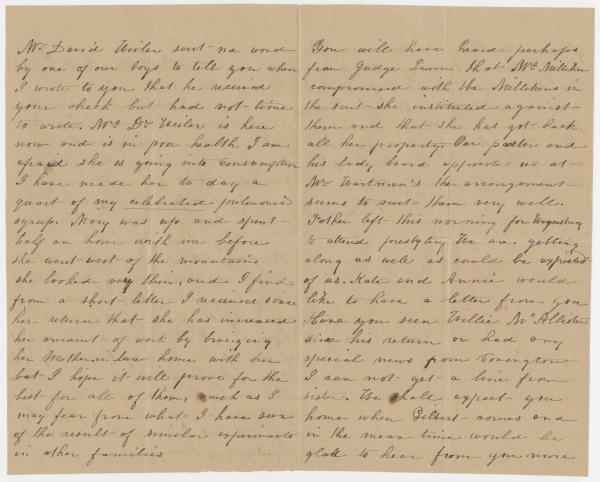 Mr David Weiler sent me word
by one of our boys to tell you when
I wrote to you that he received
your check but had not time
to write. Mrs Dr Weiler is here
now and is in poor health I am
afraid she is going into Consumption
I have made her to day a
quart of my celebrated pulmonic
syrup. Mary was up and spent
half an hour with me before
she went west of the mountains
she looked very thin, and I find
from a short letter I received since
her return that she has increased
her amount of work by bringing
her Mother in law home with her
but I hope it will prove for the
best for all of them, much as I
may fear from what I have seen
of the result of similar experiments
in other families
You will have heard perhaps
from Judge that Mrs Milliken
compromised with the Millikens in
the suit she instituted against
them and that she has got back
all her property. Our pastor and
his lady board opposite us at
Mr Wortman's the arrangement
seems to suit them very well.
Father left this morning for Waynesburg
to attend presbytery We are getting
along as well as could be expected
of us. Kate and Annie would
like to have a letter from you
Have you seen Willie McAllister
since his return or had any
special news from Covington
I can not get a line from
sister. We shall expect you
home when Gilbert comes and
in the mean time would be
glad to hear from you more